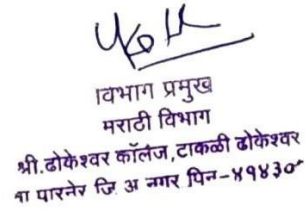 विभाग प्रमुख
मराठी विभाग
श्री.ढोकेश्वर कॉलेज,टाकळी ढोकेश्वर
ता पारनेर जि अ नगर पिन-४१४३०